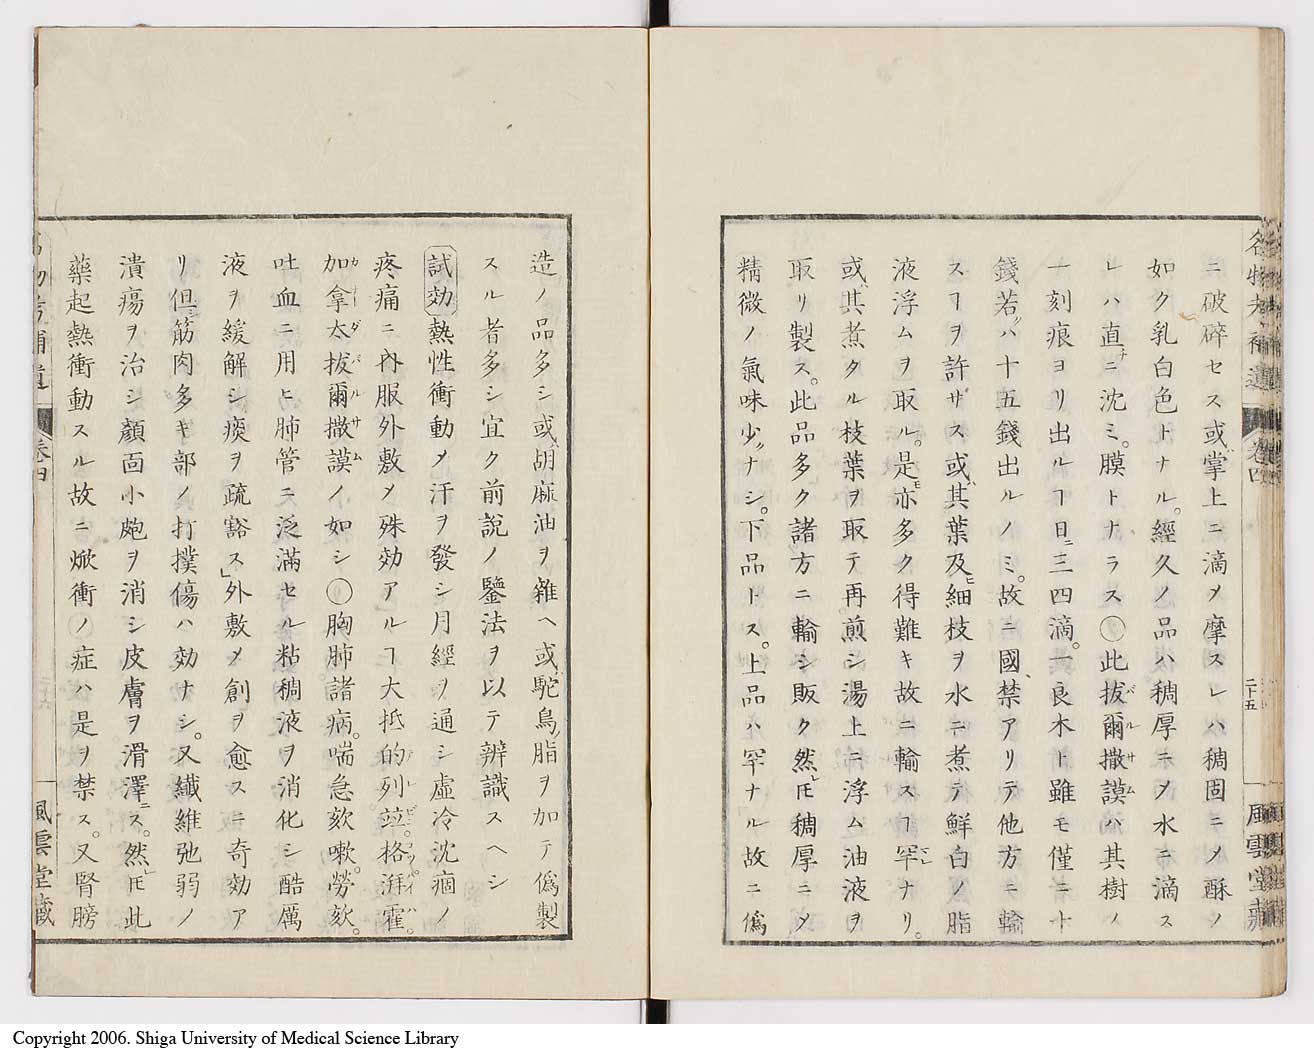 名物考補遺 卷四 二十五 風雲堂藏
ニ破碎セス或ハ掌上ニ滴〆摩スレハ稠固ニ〆酥ノ
如ク乳白色トナル。經久ノ品ハ稠厚ニ〆水ニ滴ス
レハ直チニ沈ミ。膜トナラス〇此拔爾撒謨ハ其樹ノ
一刻痕ヨリ出ルヿ日ニ三四滴。一良木ト雖モ僅ニ十
錢若クハ十五錢出ルノミ。故ニ國禁アリテ他方ニ輸
スヿヲ許サス或ハ其葉及ヒ細枝ヲ水ニ煮テ鮮白ノ脂
液浮ムヲ取ル。是モ亦多ク得難キ故ニ輸スヿ罕レナリ。
或ハ其煮タル枝葉ヲ取テ再煎シ湯上ニ浮ム油液ヲ
取リ製ス。此品多ク諸方ニ輸シ販ク然レ𪜈稠厚ニ〆
精微ノ氣味少ナシ。下品トス。上品ハ罕ナル故ニ僞
造ノ品多シ或ハ胡麻油ヲ雜ヘ或ハ駝鳥ノ脂ヲ加テ僞製
スル者多シ宜ク前說ノ鑒法ヲ以テ辨識スヘシ
試効 熱性衝動〆汗ヲ發シ月經ヲ通シ虛冷沈痼ノ
疼痛ニ內服外敷〆殊効アルヿ大抵的列竝。格湃霍。
加拿太拔爾撒謨ノ如シ〇胸肺諸病。喘急欬嗽。勞欬。
吐血ニ用ヒ肺管ニ泛滿セル粘稠液ヲ消化シ酷厲
液ヲ緩解シ痰ヲ疏豁ス」外敷〆創ヲ愈スニ奇効ア
リ但シ筋肉多キ部ノ打撲傷ハ効ナシ。又纖維弛弱ノ
潰瘍ヲ治シ顏面小皰ヲ消シ皮膚ヲ滑澤ニス。然レ𪜈此
藥起熱衝動スル故ニ焮衝ノ症ハ是ヲ禁ス。又腎膀
名物考補遺 卷四 風雲堂藏
Copyright 2006. Shiga University of Medical Science Library